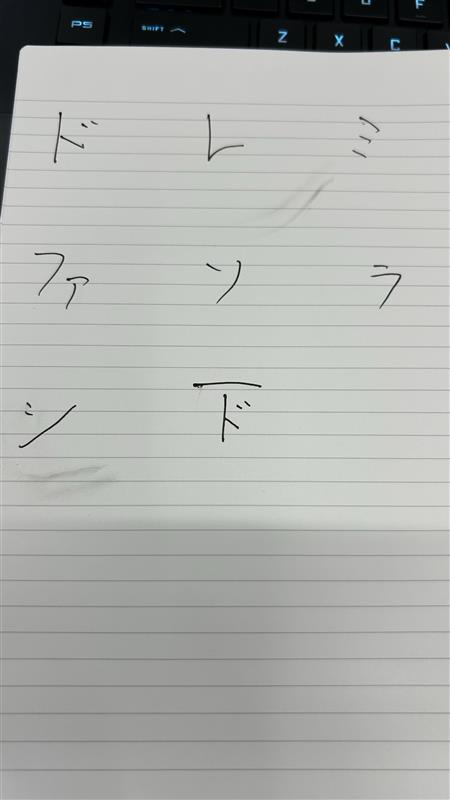 PS SHIFT Z X C F
ド レ ミ
ファ ソ ラ
シ ド